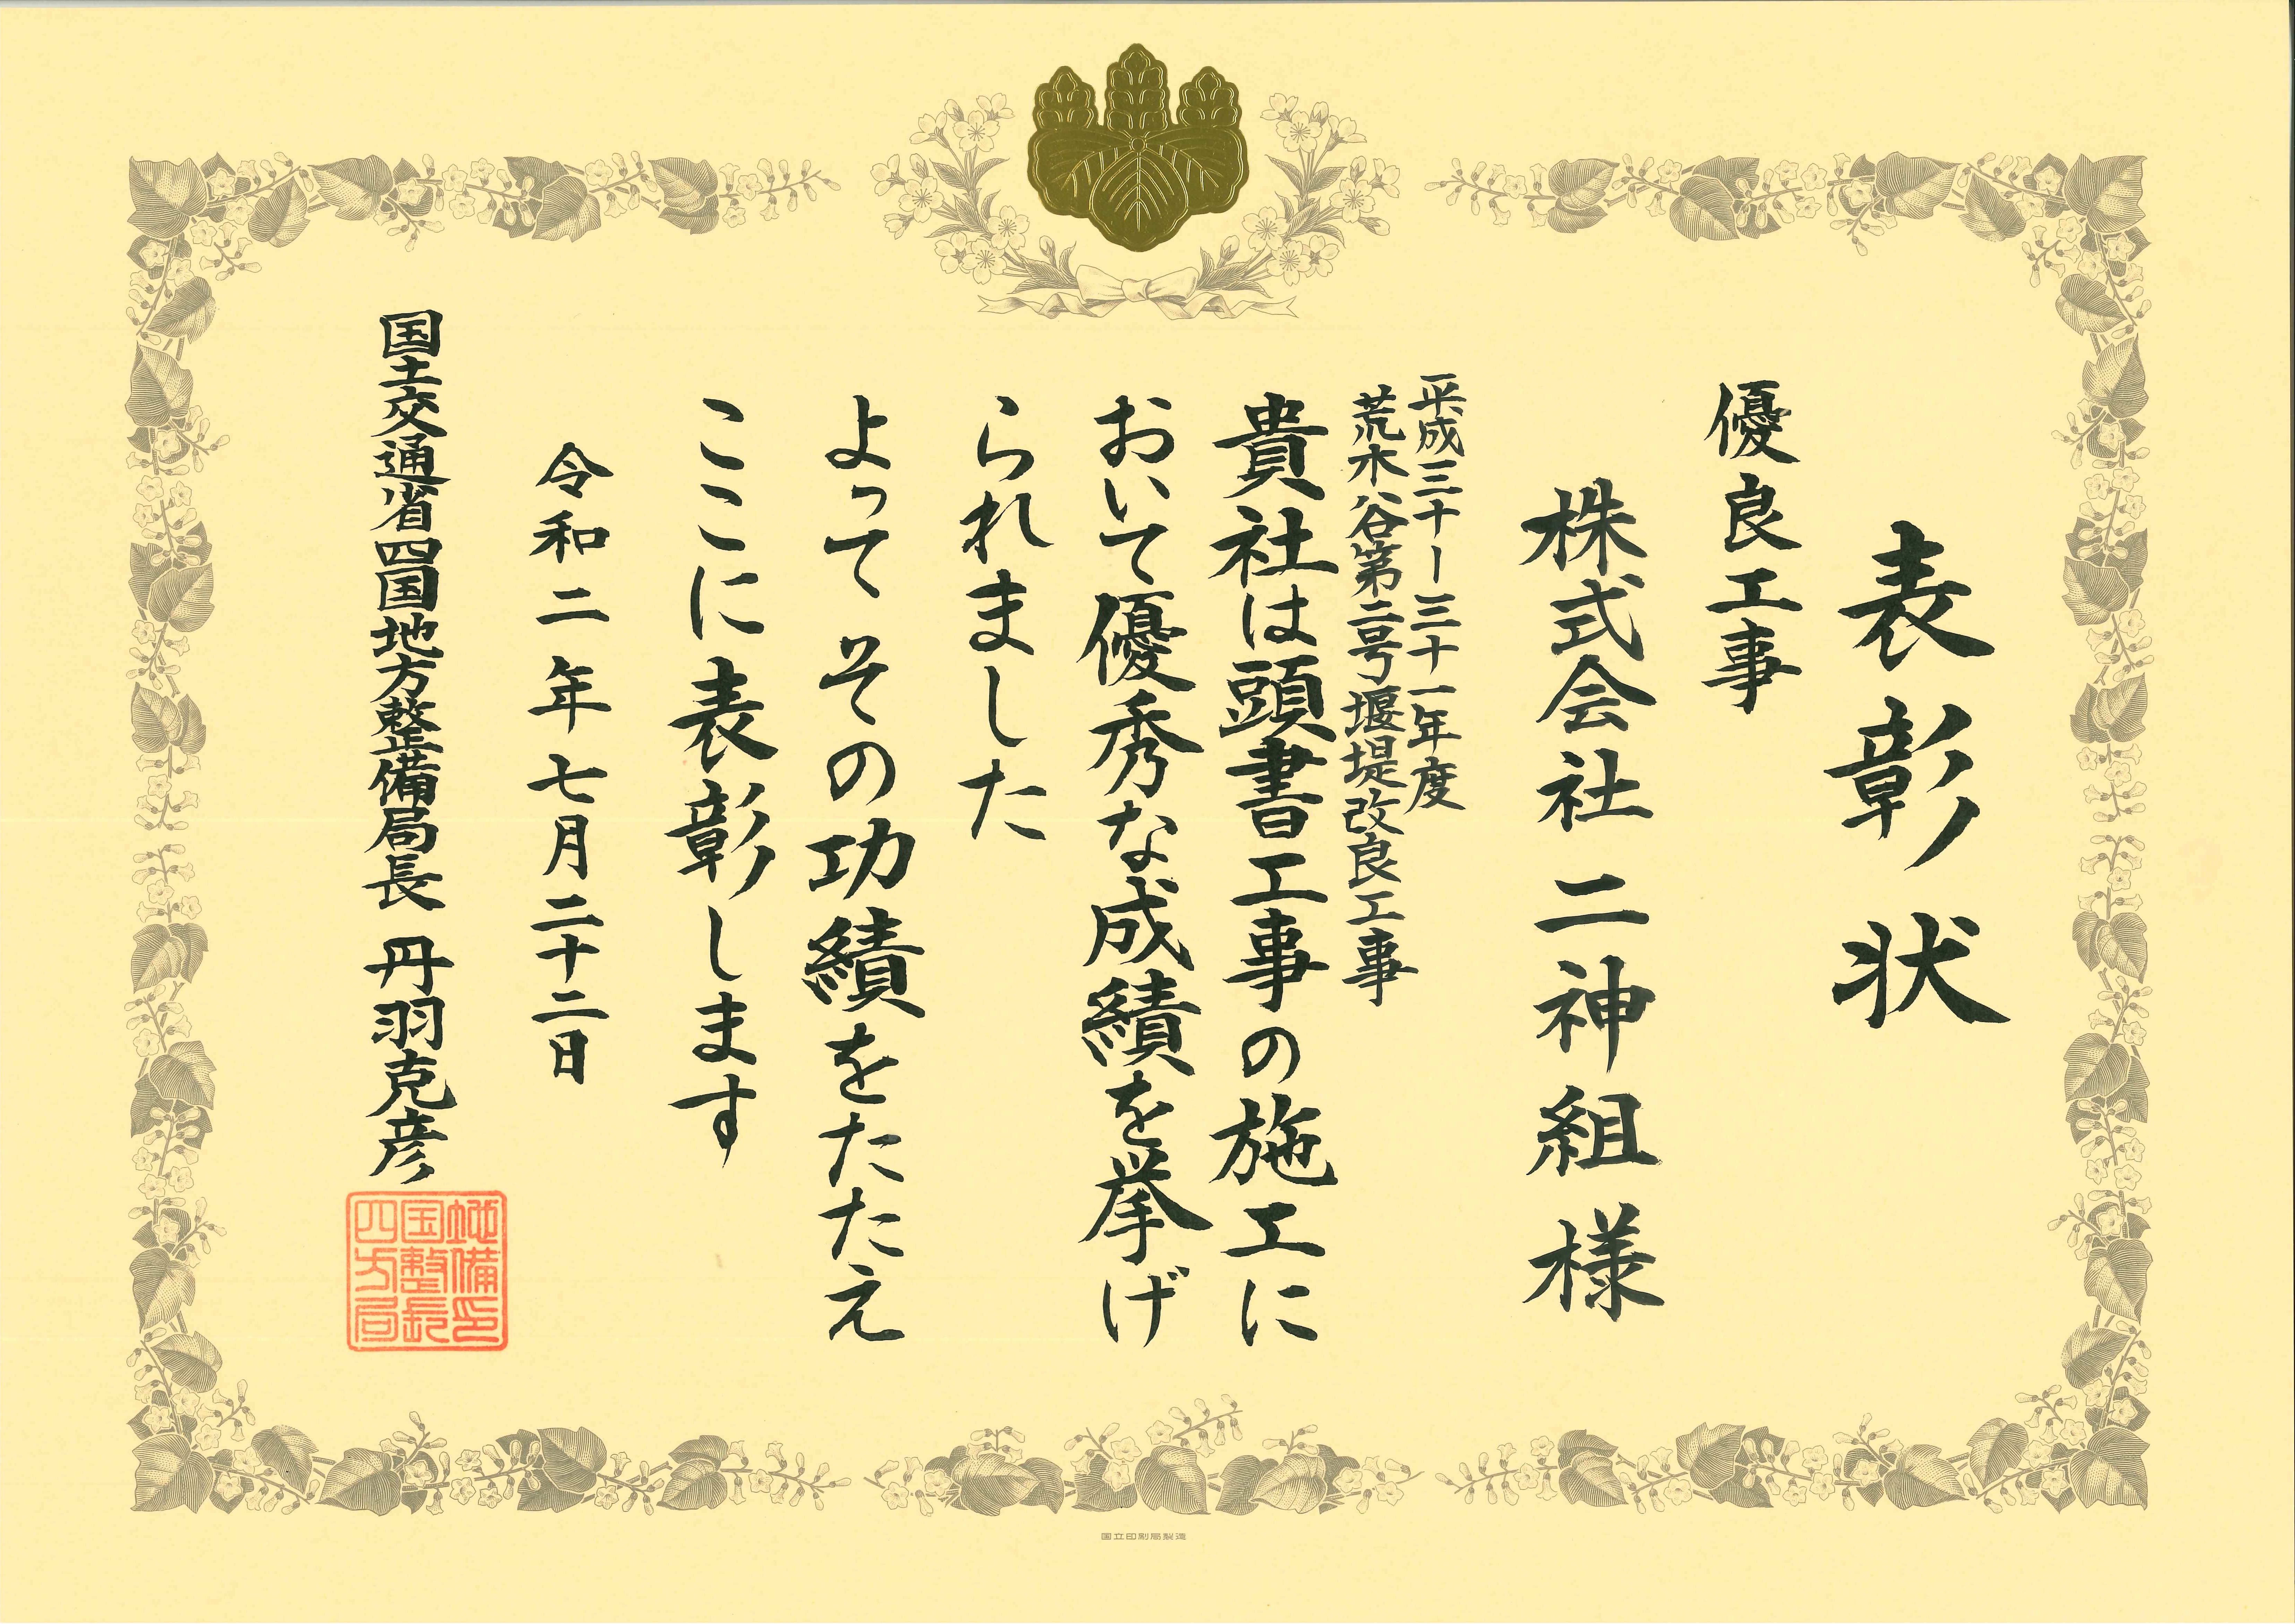 表彰状
優良工事
株式会社二神組様
平成三十ー三十一年度
荒木谷第二号堰堤改良工事
貴社は頭書工事の施工に
おいて優秀な成績を挙げ
られました
よってその功績をたたえ
ここに表彰します
令和二年七月二十二日
国土交通省四国地方整備局長 丹羽克彦
四国地
方整備
局長印
国立印刷局製造